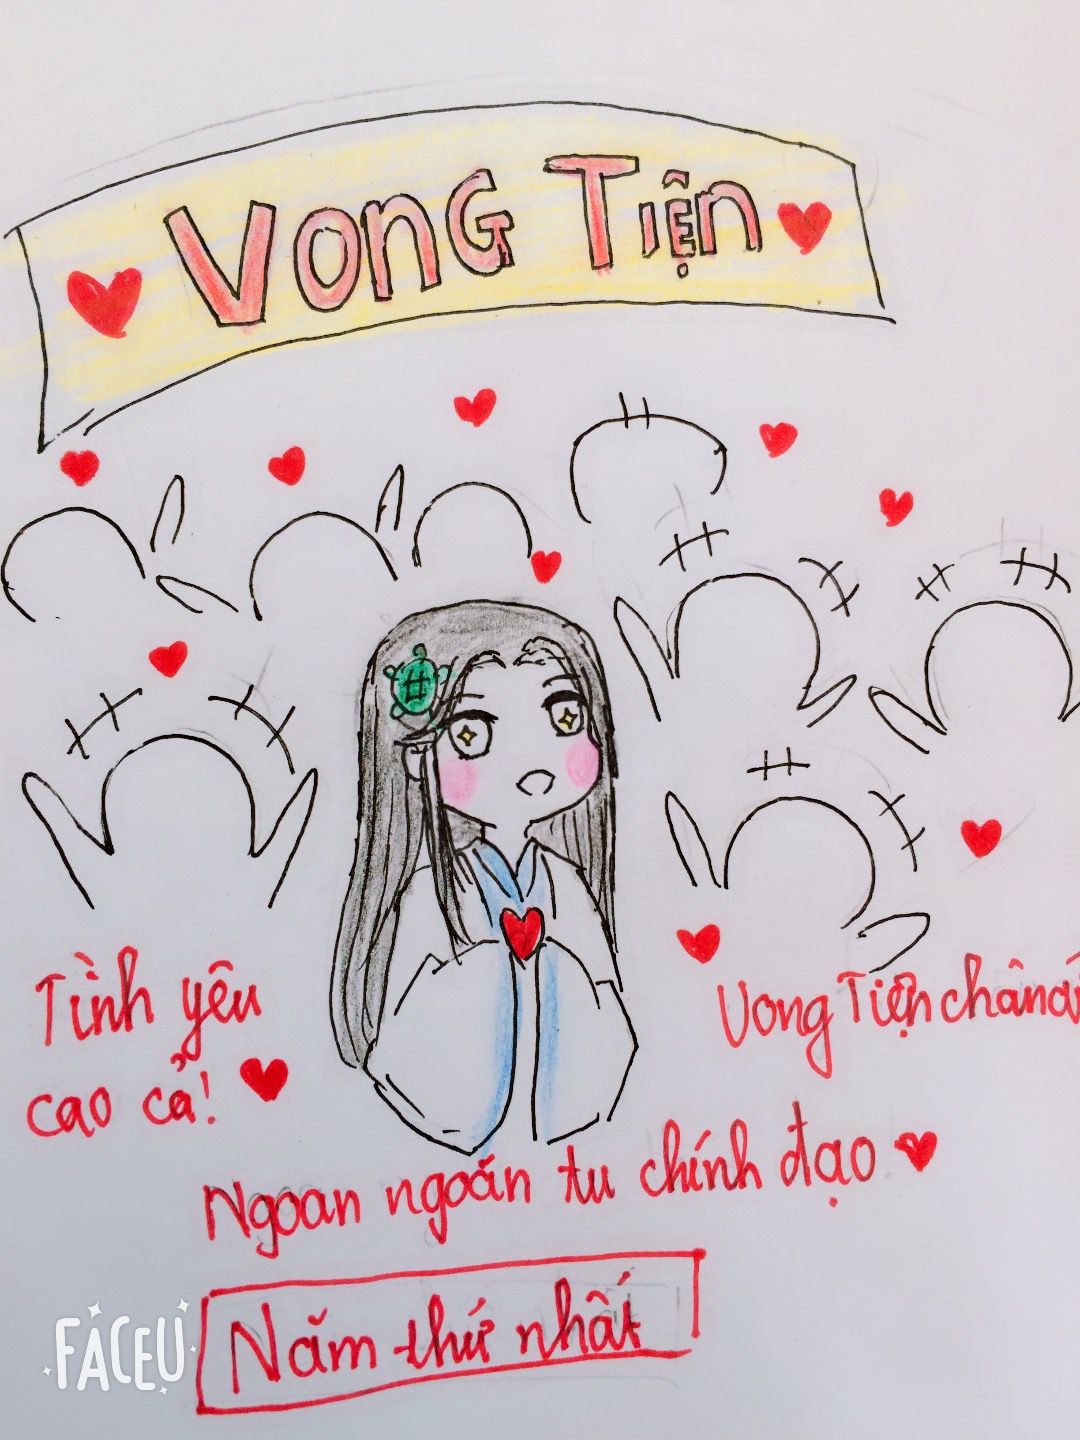 Vong Tiện
Tình yêu
cao cả!
Vong Tiện chân
Ngoan ngoãn tu chính đạo
Năm thứ nhất
FACEU